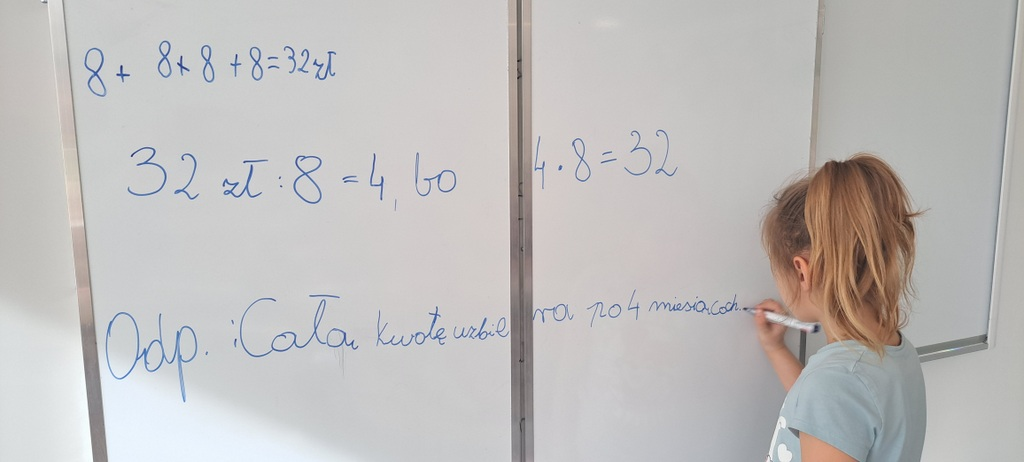 8 + 8 + 8 + 8 = 32 zł
32 zł : 8 = 4, bo 4 · 8 = 32
Odp. : Całą kwotę uzbiera po 4 miesiącach.